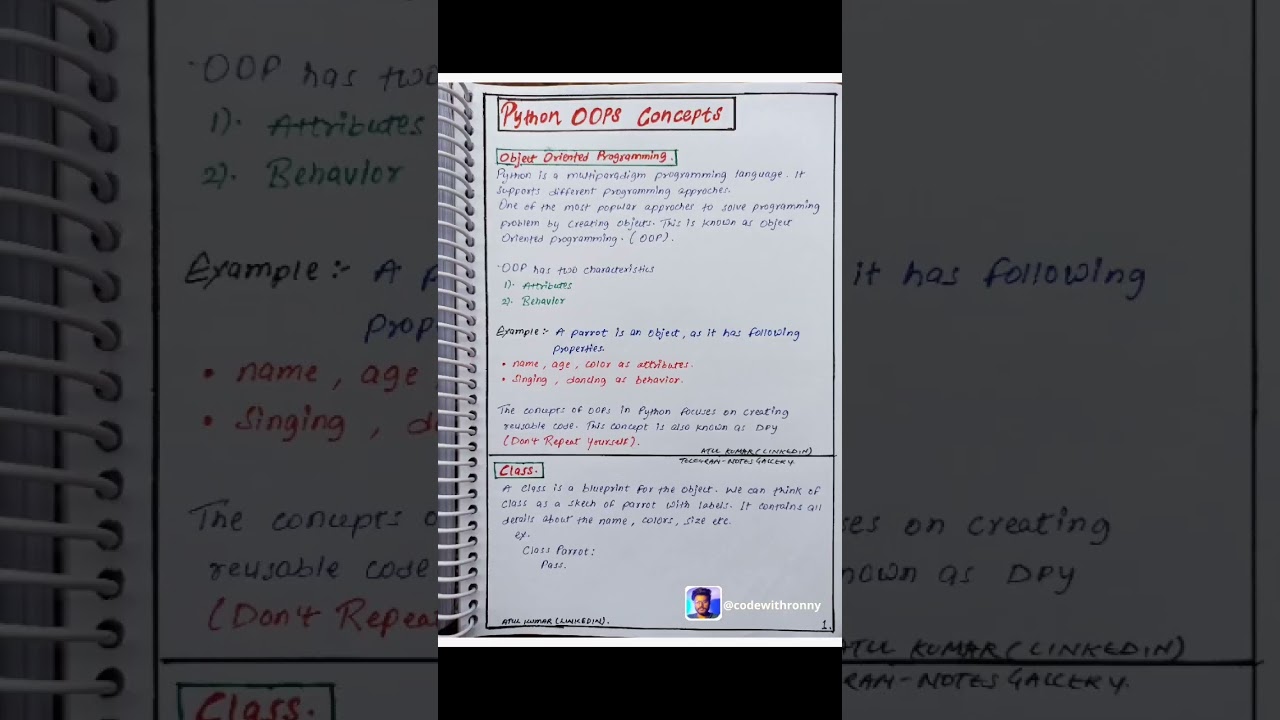 Python OOPS Concepts
Object Oriented Programming.
Python is a multiparadigm programming language. It
supports different programming approches.
One of the most popular approches to solve programming
problem by creating objects. This is known as object
Oriented programming. (OOP).
OOP has two characteristics
1). Attributes
2). Behavior
Example:- A parrot is an object, as it has following
properties.
• name, age, color as attributes.
• Singing, dancing as behavior.
The concepts of OOPS in Python focuses on creating
reusable code. This concept is also known as DPY
(Don't Repeat Yourself).
ATUL KUMAR (LINKEDIN)
TELEGRAM-NOTES GALLERY.
Class.
A class is a blueprint for the object. We can think of
class as a skech of parrot with labels. It contains all
details about the name, colors, size etc.
ex.
Class Parrot:
Pass.
@codewithronny
ATUL KUMAR (LINKEDIN).
1.
OOP has two
1). Attributes
2). Behavior
Example:- A p
prop
• name, age
• Singing, d
The concepts o
reusable code
(Don't Repea
Class.
it has following
ses on creating
nown as DPY
ATUL KUMAR (LINKEDIN)
RAM-NOTES GALLERY.